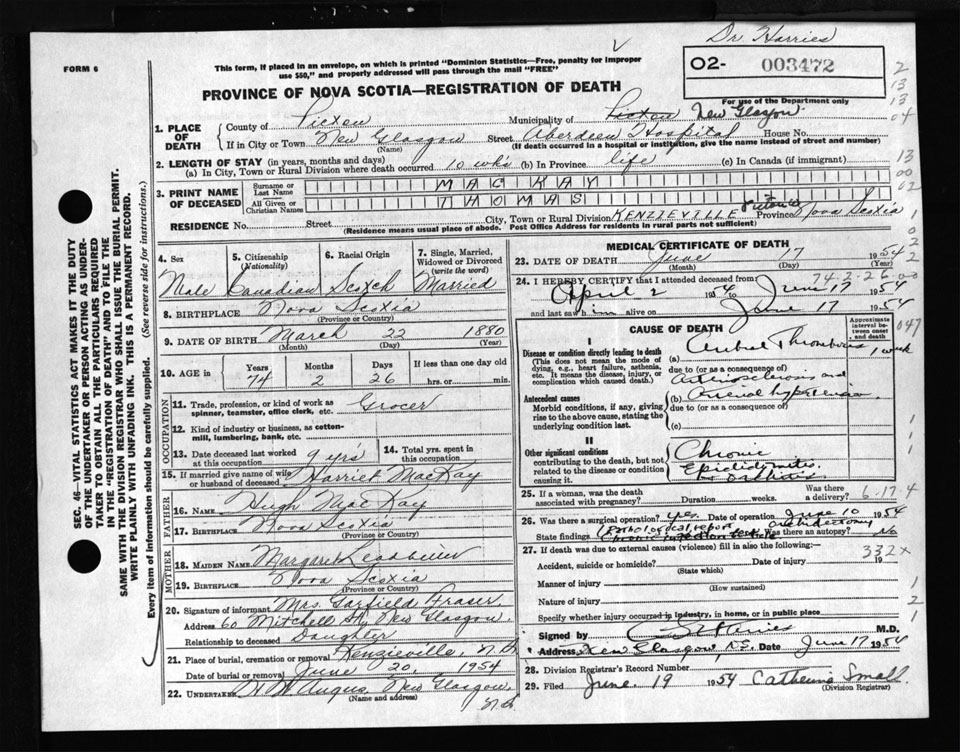 Dr Harries
FORM 6
This form, if placed in an envelope, on which is printed "Dominion Statistics—Free, penalty for improper
use $50," and properly addressed will pass through the mail "FREE"
02- 003472
For use of the Department only
PROVINCE OF NOVA SCOTIA—REGISTRATION OF DEATH
1. PLACE OF DEATH
County of Pictou Municipality of Pictou New Glasgow
If in City or Town New Glasgow Street Aberdeen Hospital House No.
(Name) (If death occurred in a hospital or institution, give the name instead of street and number)
2. LENGTH OF STAY (in years, months and days)
(a) In City, Town or Rural Division where death occurred 10 wk's (b) In Province life (c) In Canada (if immigrant)
3. PRINT NAME OF DECEASED
Surname or Last Name MACKAY
All Given or Christian Names THOMAS
RESIDENCE No. Street City, Town or Rural Division KENZIEVILLE Pictou Co Province Nova Scotia
(Residence means usual place of abode. Post Office Address for residents in rural parts not sufficient)
4. Sex Male
5. Citizenship (Nationality) Canadian
6. Racial Origin Scotch
7. Single, Married, Widowed or Divorced (write the word) Married
8. BIRTHPLACE Nova Scotia
(Province or Country)
9. DATE OF BIRTH March 22 1880
(Month) (Day) (Year)
10. AGE in Years 74 Months 2 Days 26 If less than one day old hrs. or min.
OCCUPATION
11. Trade, profession, or kind of work as spinner, teamster, office clerk, etc. Grocer
12. Kind of industry or business, as cotton-mill, lumbering, bank, etc.
13. Date deceased last worked at this occupation 9 yrs
14. Total yrs. spent in this occupation
15. If married give name of wife or husband of deceased Harriet MacKay
FATHER
16. Name Hugh MacKay
17. Birthplace Nova Scotia
(Province or Country)
MOTHER
18. MAIDEN NAME Margaret
19. BIRTHPLACE Nova Scotia
(Province or Country)
20. Signature of informant Mrs. Garfield Fraser.
Address 60 Mitchell St., New Glasgow.
Relationship to deceased Daughter
21. Place of burial, cremation or removal Kenzieville, N.S.
Date of burial or removal June 20, 1954
22. UNDERTAKER Angus, New Glasgow, N.S.
(Name and address)
MEDICAL CERTIFICATE OF DEATH
23. DATE OF DEATH June 17 1954
(Month) (Day)
74-2-26-00
24. I HEREBY CERTIFY that I attended deceased from
April 2 1954 to June 17 1954
and last saw him alive on June 17 1954
CAUSE OF DEATH
Approximate interval between onset and death
I
Disease or condition directly leading to death
(This does not mean the mode of dying, e.g., heart failure, asthenia, etc. It means the disease, injury, or complication which caused death.)
(a) Cerebral Thrombosis 1 week
due to (or as a consequence of)
Arteriosclerosis and
Antecedent causes
Morbid conditions, if any, giving rise to the above cause, stating the underlying condition last.
(b) Arterial hypertension
due to (or as a consequence of)
(c)
II
Other significant conditions
contributing to the death, but not related to the disease or condition causing it.
Chronic
Epididymitis
Orchitis
25. If a woman, was the death associated with pregnancy? Duration weeks. Was there a delivery? 6-17-4
26. Was there surgical operation? yes. Date of operation June 10 1954
State findings Orchidectomy Was there an autopsy? No
27. If death was due to external causes (violence) fill in also the following:—
332x
Accident, suicide or homicide? Date of injury 19
(State which)
Manner of injury
(How sustained)
Nature of injury
Specify whether injury occurred in industry, in home, or in public place
Signed by M.D.
Address New Glasgow, N.S. Date June 17 1954
28. Division Registrar's Record Number
29. Filed June 19 1954 Catherine Small
(Division Registrar)
SEC. 46—VITAL STATISTICS ACT MAKES IT THE DUTY
OF THE UNDERTAKER OR PERSON ACTING AS UNDER-
TAKER TO OBTAIN ALL THE PARTICULARS REQUIRED
IN THE "REGISTRATION OF DEATH" AND TO FILE THE
SAME WITH THE DIVISION REGISTRAR WHO SHALL ISSUE THE BURIAL PERMIT.
WRITE PLAINLY WITH UNFADING INK. THIS IS A PERMANENT RECORD.
Every item of information should be carefully supplied. (See reverse side for instructions.)